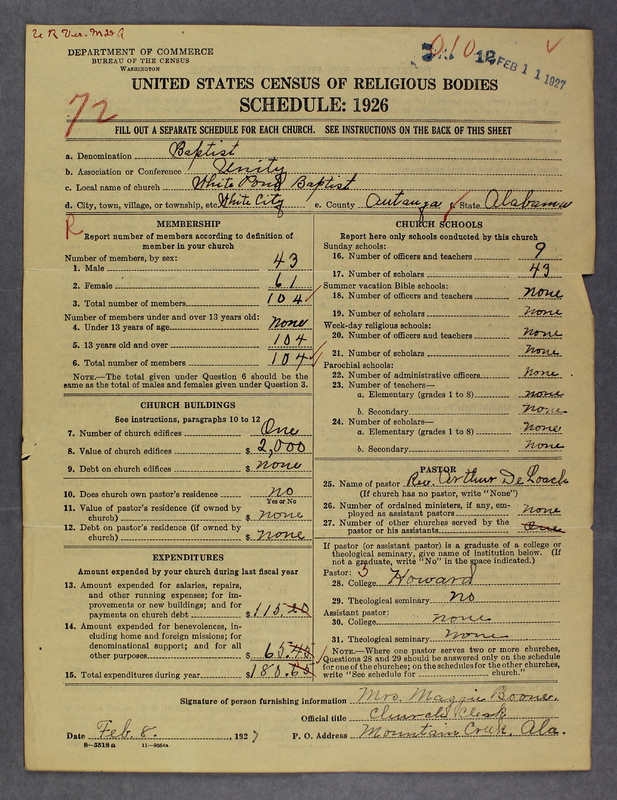 U R Ver. M & A
DEPARTMENT OF COMMERCE
BUREAU OF THE CENSUS
WASHINGTON
010
12
FEB 11 1927
UNITED STATES CENSUS OF RELIGIOUS BODIES
SCHEDULE: 1926
72
FILL OUT A SEPARATE SCHEDULE FOR EACH CHURCH. SEE INSTRUCTIONS ON THE BACK OF THIS SHEET
a. Denomination Baptist
b. Association or Conference Unity
c. Local name of church White Pond Baptist
d. City, town, village, or township, etc. White City e. County Autauga f. State Alabama
R
MEMBERSHIP
Report number of members according to definition of
member in your church
Number of members, by sex:
1. Male 43
2. Female 61
3. Total number of members 104
Number of members under and over 13 years old:
4. Under 13 years of age none
5. 13 years old and over 104
6. Total number of members 104
NOTE.—The total given under Question 6 should be the
same as the total of males and females given under Question 3.
CHURCH BUILDINGS
See instructions, paragraphs 10 to 12
7. Number of church edifices One
8. Value of church edifices $ 2,000
9. Debt on church edifices $ none
10. Does church own pastor's residence no
Yes or No
11. Value of pastor's residence (if owned by
church) $ none
12. Debt on pastor's residence (if owned by
church) $ none
EXPENDITURES
Amount expended by your church during last fiscal year
13. Amount expended for salaries, repairs,
and other running expenses; for im-
provements or new buildings; and for
payments on church debt $ 115.20
14. Amount expended for benevolences, in-
cluding home and foreign missions; for
denominational support; and for all
other purposes $ 65.45
15. Total expenditures during year $ 180.65
CHURCH SCHOOLS
Report here only schools conducted by this church
Sunday schools:
16. Number of officers and teachers 9
17. Number of scholars 43
Summer vacation Bible schools:
18. Number of officers and teachers none
19. Number of scholars none
Week-day religious schools:
20. Number of officers and teachers none
21. Number of scholars none
Parochial schools:
22. Number of administrative officers none
23. Number of teachers—
a. Elementary (grades 1 to 8) none
b. Secondary none
24. Number of scholars—
a. Elementary (grades 1 to 8) none
b. Secondary none
PASTOR
25. Name of pastor Rev. Arthur DeLoach
(If church has no pastor, write "None")
26. Number of ordained ministers, if any, em-
ployed as assistant pastors none
27. Number of other churches served by the
pastor or his assistants
If pastor (or assistant pastor) is a graduate of a college or
theological seminary, give name of institution below. (If
not a graduate, write "No" in the space indicated.)
Pastor: 3
28. College Howard
29. Theological seminary no
Assistant pastor:
30. College none
31. Theological seminary none
NOTE.—Where one pastor serves two or more churches,
Questions 28 and 29 should be answered only on the schedule
for one of the churches; on the schedules for the other churches,
write "See schedule for church."
Signature of person furnishing information Mrs. Maggie Boone.
Official title Church Clerk
Date Feb. 8, 1927 P. O. Address Mountain Creek, Ala.
8—5518a 11—9254a